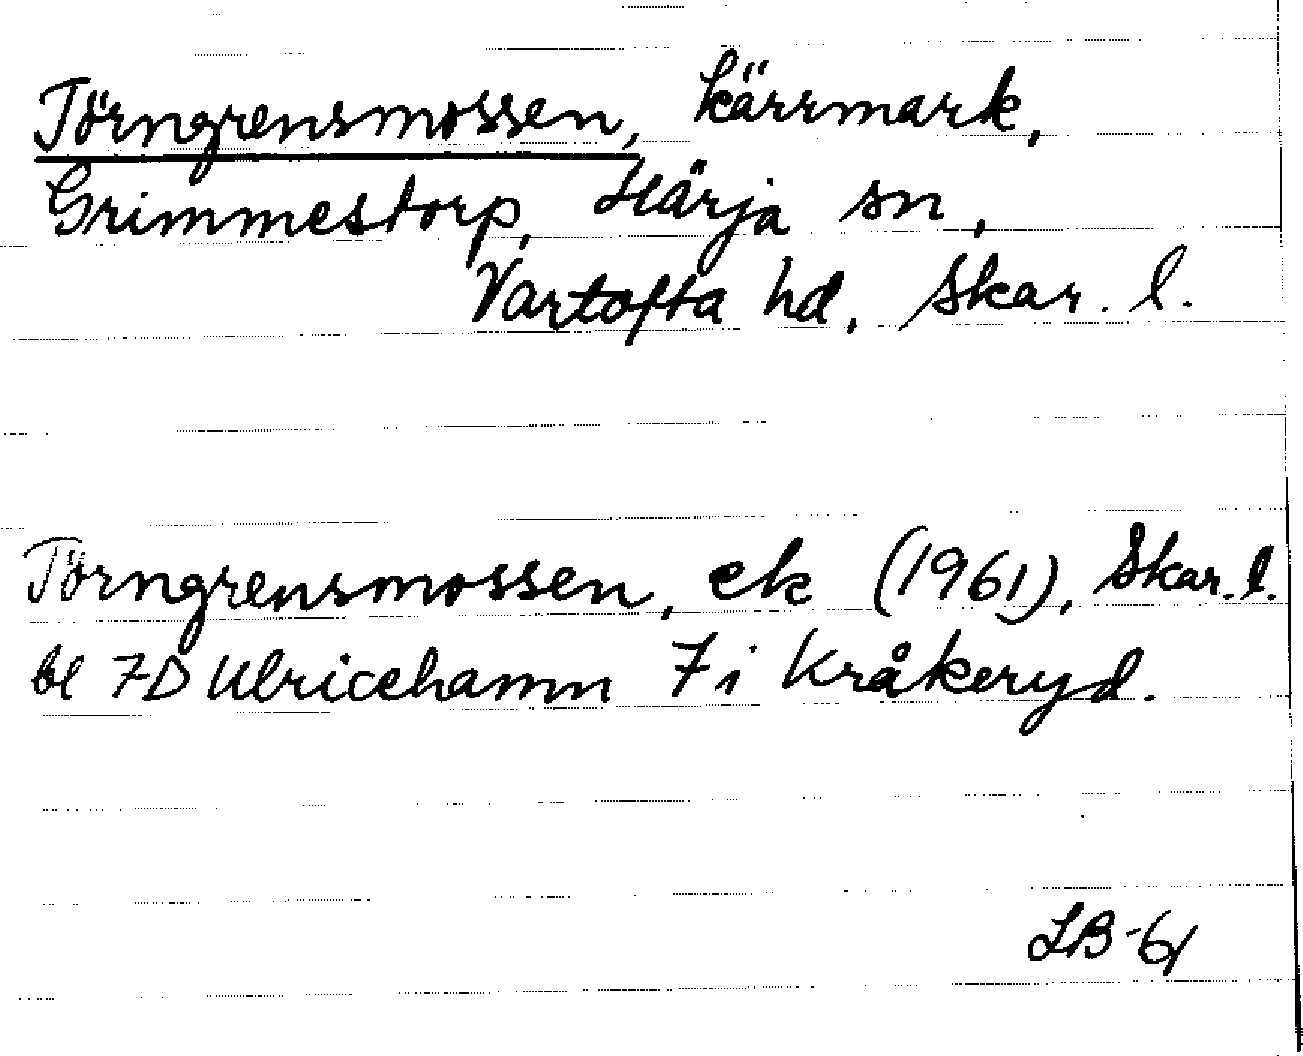 Törngrensmossen, kärrmark,
Grimmestorp, Härja sn,
Vartofta hd, Skar. l.
Törngrensmossen, ek (1961), Skar. l.
bl 7D Ulricehamn 7i Kråkeryd.
LB-61